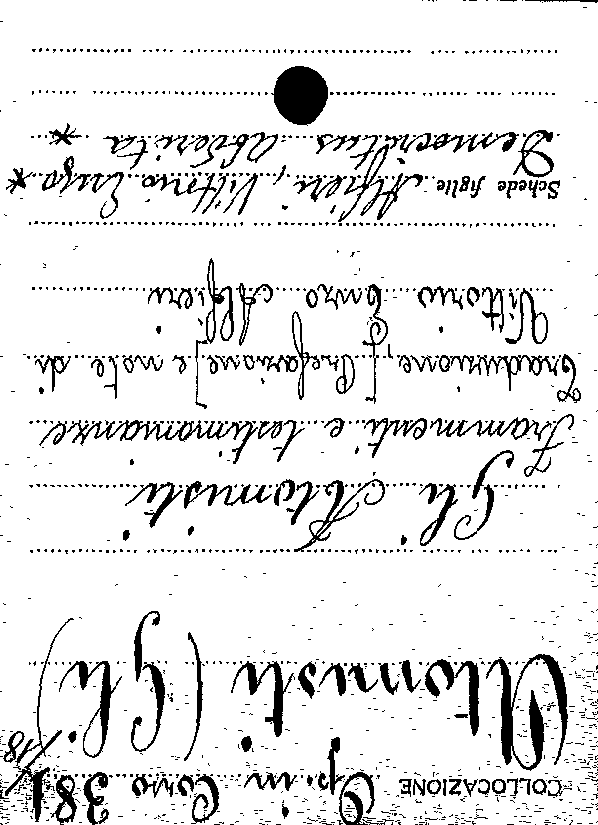 COLLOCAZIONE Op. in Corso 381/18
Atomisti (Gli)
Gli Atomisti
Frammenti e testimonianze
Traduzione, [Prefazione] e note di
Vittorio Enzo Alfieri
Schede figlie Alfieri, Vittorio Enzo *
Democritus Abderita *